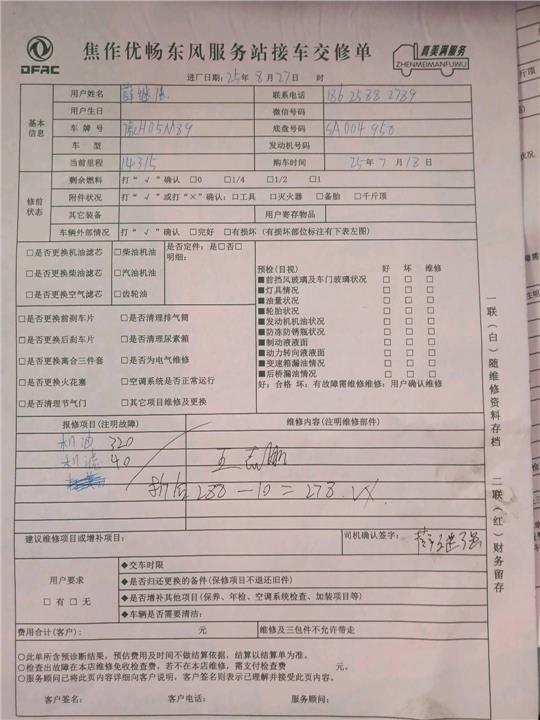 DFAC
焦作优畅东风服务站接车交修单
真美满服务
ZHENMEIMANFUWU
进厂日期：25年8月27日 时
用户姓名 联系电话
用户生日 微信号码
基本信息
车牌号 豫H05M89 底盘号码 SA004950
车型 发动机号码
当前里程 14315 购车时间 25年7月18日
修前状态
剩余燃料 打“√”确认 □0 □1/4 □1/2 □1
附件状况 打“√”或打“×”确认：□工具 □灭火器 □备胎 □千斤顶
其它装备 用户寄存物品
车辆外部情况 打“√”确认 □完好 □有损坏（有损坏部位标注有下表左图）
□是否更换机油滤芯 □柴油机油 是否定件：是□否□
明细：
□是否更换柴油滤芯 □汽油机油
□是否更换空气滤芯 □齿轮油
预检（目视） 好 坏 维修
■前挡风玻璃及车门玻璃状况 □ □ □
■灯具情况 □ □ □
■油量状况 □ □ □
■轮胎状况 □ □ □
■发动机机油状况 □ □ □
■防冻防锈瓶状况 □ □ □
■制动液液面 □ □ □
■动力转向液液面 □ □ □
■变速箱漏油情况 □ □ □
■后桥漏油情况 □ □ □
好：合格 坏：有故障需维修维修：用户确认维修
□是否更换前刹车片 □是否清理排气筒
□是否更换后刹车片 □是否清理尿素箱
□是否更换离合三件套 □是否为电气维修
□是否更换火花塞 □空调系统是否正常运行
□是否清理节气门 □其它项目维修及更换
报修项目（注明故障） 维修内容（注明维修部件）
机油 320
机滤 40
折后 288-10=278.
建议维修项目或增补项目： 司机确认签字：
用户要求
□有 □无
◆交车时限
◆是否归还更换的备件（保修项目不退还旧件）
◆是否增补其他项目（保养、年检、空调系统检查、加装项目等）
◆车辆是否需要清洁：
费用合计（客户）： 元 维修及三包件不允许带走
○此单所含预诊断结果，预估费用及时间不做结算依据，结算以结算单为准。
○检查出故障在本店维修免收检查费，若不在本店维修，需支付检查费 元。
○服务顾问已将此页内容详细向客户说明，客户签名则表示已理解并接受此页内容。
客户签名： 客户电话： 服务顾问：
一联（白）随维修资料存档
二联（红）财务留存